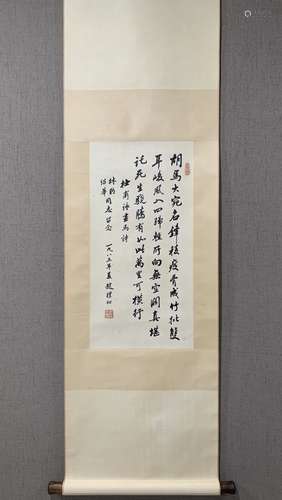 胡馬大宛名鋒稜瘦骨成竹批雙
耳峻風入四蹄輕所向無空闊真堪
託死生驍騰有如此萬里可橫行
杜甫詠房兵曹馬詩
同志留念
一九八三年夏趙樸初